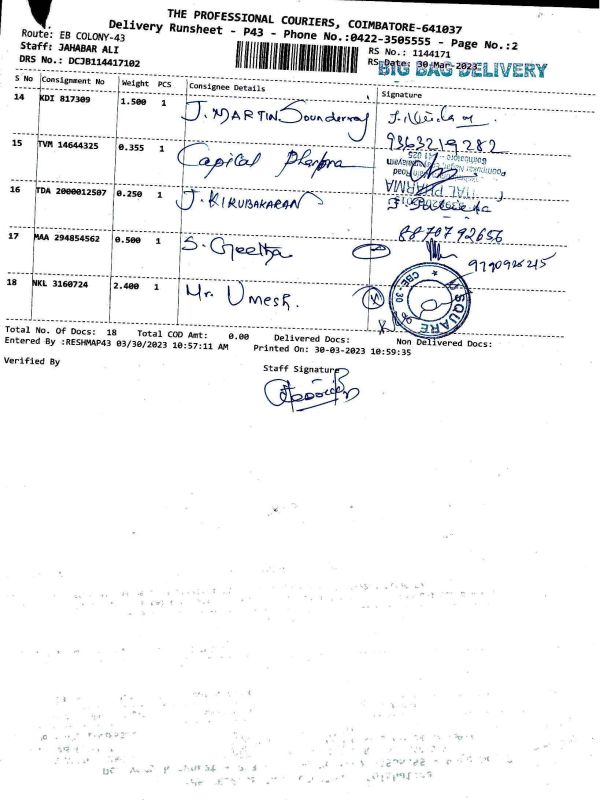 THE PROFESSIONAL COURIERS, COIMBATORE-641037
Delivery Runsheet - P43 - Phone No.:0422-3505555 - Page No.:2
Route: EB COLONY-43
Staff: JAHABAR ALI
RS No.: 1144171
DRS No.: DCJB114417102
RS Date: 30-Mar-2023
BIG BAG DELIVERY
S No Consignment No Weight PCS Consignee Details Signature
14 KDI 817309 1.500 1 J. MARTIN Sounderraj
9363219282
15 TVM 14644325 0.355 1 Capital Pharma
16 TDA 2000012507 0.250 1 J. KIRUBAKARAN
8870792656
17 MAA 294854562 0.500 1 S. Geetha
9790928215
18 NKL 3160724 2.400 1 Mr. Umesh.
SQUARE
CBE-30
Total No. Of Docs: 18 Total COD Amt: 0.00 Delivered Docs: Non Delivered Docs:
Entered By :RESHMAP43 03/30/2023 10:57:11 AM Printed On: 30-03-2023 10:59:35
Verified By Staff Signature